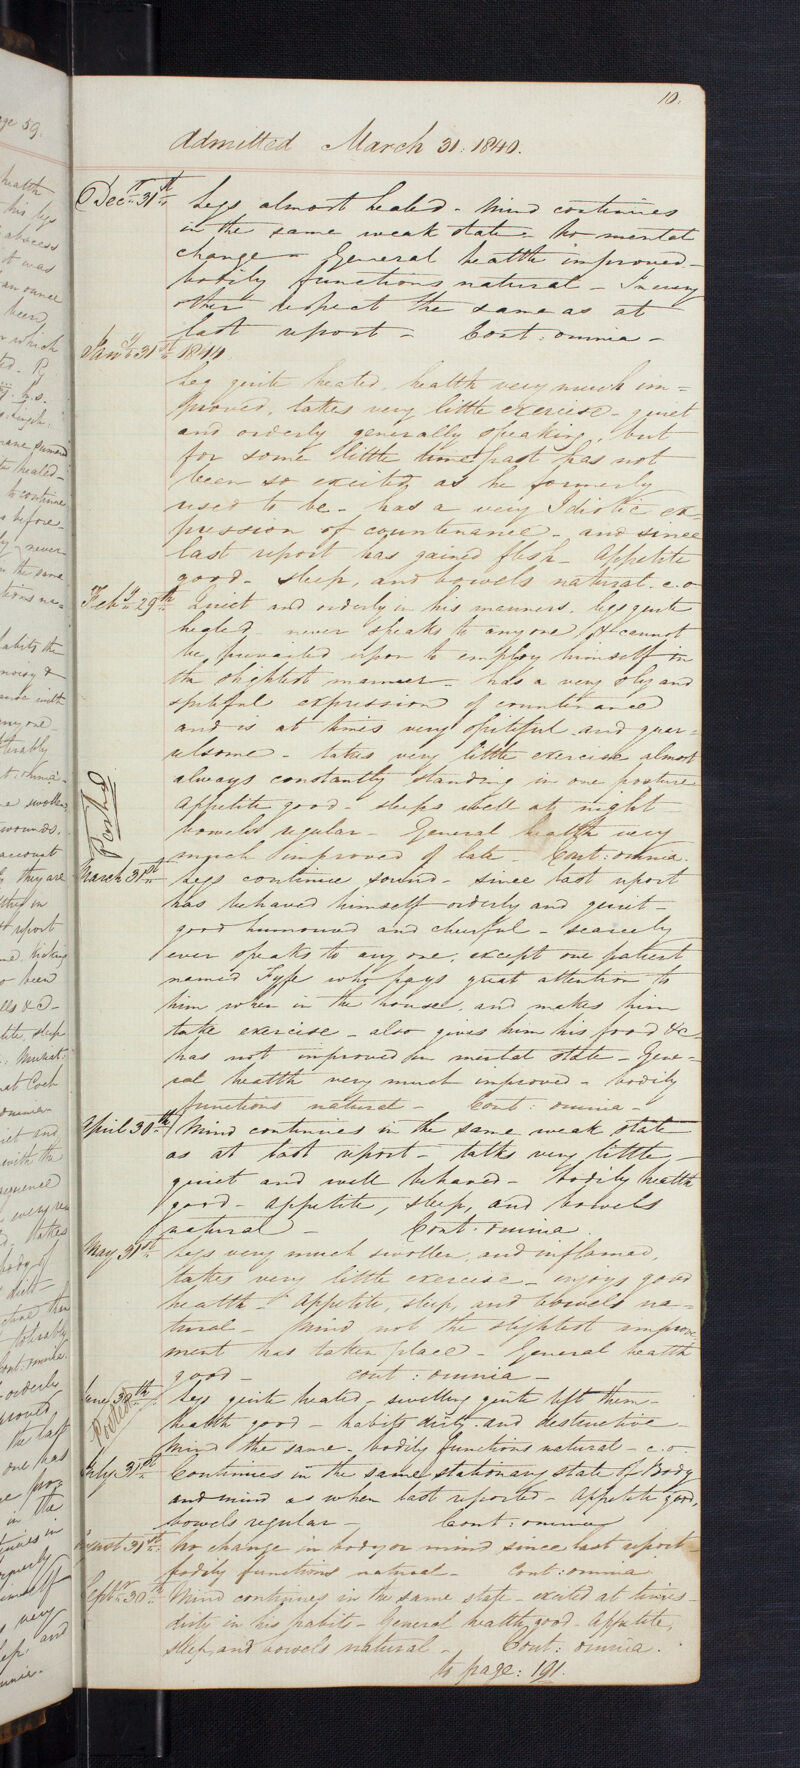 10.
Admitted March 31. 1840.
Decr. 31st. Legs almost healed - Mind continues
in the same weak state - No mental
change - General health improved -
bodily functions natural - In every
other respect the same as at
last report - Cont: omnia -
Jany. 31st. 1844
Leg quite healed, health very much im=
proved, takes very little exercise - quiet
and orderly generally speaking, but
for some little time past has not
been so excited as he formerly
used to be - has a very Idiotic ex=
pression of countenance - and since
last report has gained flesh - Appetite
good - sleep, and bowels natural. c.o
Feby. 29th. Quiet and orderly in his manners. legs quite
healed - never speaks to anyone, & cannot
be prevailed upon to employ himself in
the slightest manner - has a very sly and
spiteful expression of countenance
and is at times very spiteful and quar=
relsome - takes very little exercise almost
always constantly standing in one posture
Appetite good - sleeps well at night
bowels regular - General health very
much improved of late - Cont: omnia.
Posted
March 31st. Legs continue sound - since last report
has behaved himself orderly and quiet -
good humoured and cheerful - scarcely
ever speaks to any one, except one patient
named Fyffe who pays great attention to
him when in the house, and makes him
take exercise - also gives him his food &c -
has not improved in mental state - Gene=
ral health very much improved - bodily
functions natural - Cont: omnia -
April 30th. Mind continues in the same weak state
as at last report - talks very little -
quiet and well behaved - bodily health
good - appetite, sleep, and bowels
natural - Cont. omnia.
May 31st. Legs very much swollen, and inflamed,
takes very little exercise - enjoys good
health - Appetite, sleep, and bowels na=
tural - Mind not the slightest improve
ment has taken place - General health
good - cont: omnia -
June 30th. Legs quite healed - swelling quite left them -
health good - habits dirty and destructive -
Mind the same - bodily functions natural - c.o.
Posted
July 31st. Continues in the same stationary state of Body
and mind as when last reported - Appetite good,
bowels regular - Cont: omnia
August 31st. No change in body or mind since last report
bodily functions natural - Cont: omnia
Septr. 30th. Mind continues in the same state - excited at times -
dirty in his habits - General health good - Appetite,
sleep and bowels natural - Cont: omnia.
to page: 191.